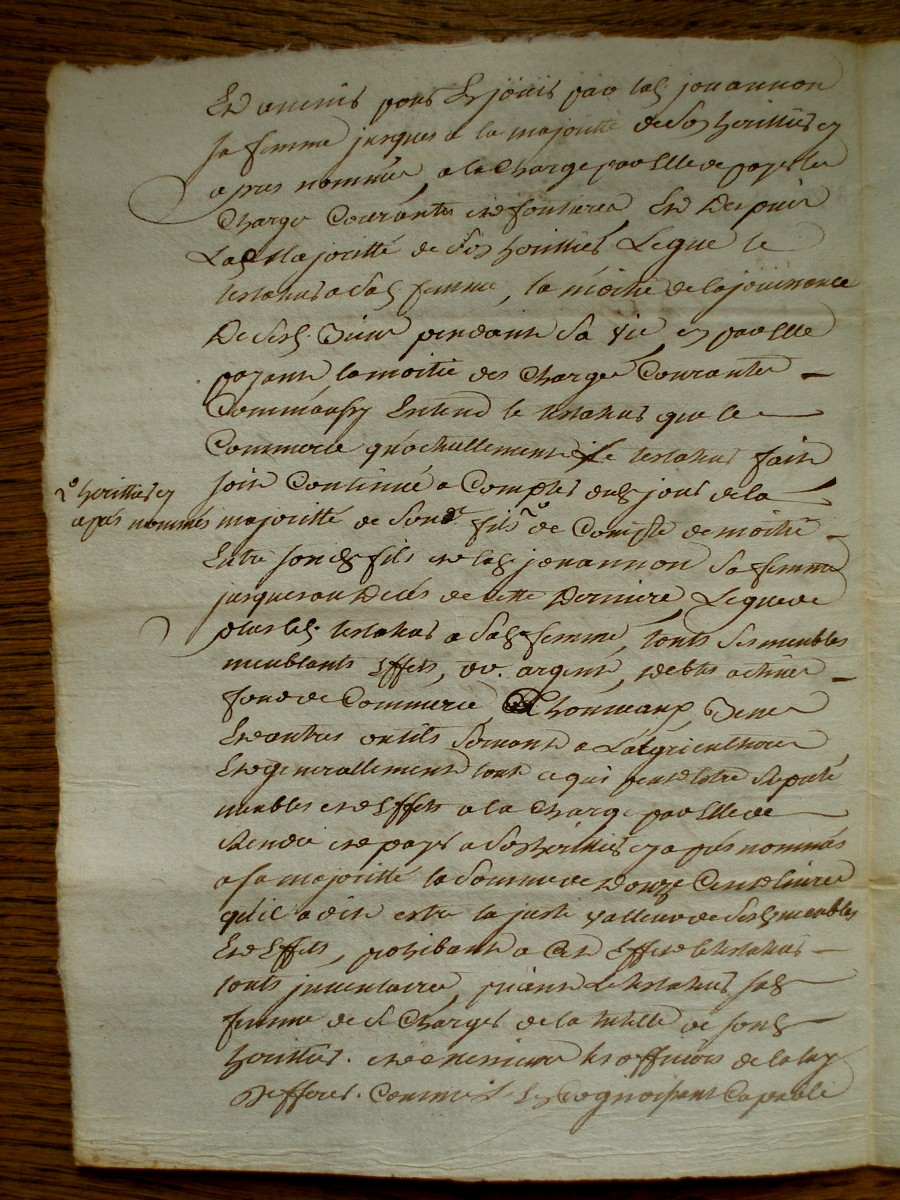 Et avenir pour En jouir par lad. jouannon
sa femme jusques a la majorité de Son heritier cy
apres nommée, a la Charge par Elle de payer les
Charges Courantes et foncieres, Et Depuis
Lad. Majoritté de Son herittier Legue le
testateur a Sad. femme, la moitié de la jouissance
De Sesd. Biens pendant Sa vie, En par Elle
payant la moitié des Charges Courantes
Comme aussy Entend le testateur que le
Commerce qu'actuellement le testateur fait
soit Continué a Compter dud. jour de la
2° herittier cy
apres nommés
majoritté de Sond. fils de Compte de moitié
Entre sond. fils et lad. jouannon Sa femme
jusques au Decés de cette Derniere, Legue de
plus led. testateur a Sad. femme, touts Ses meubles
meublants Effets, or. argent, debtes actives
fond de Commerce, Chevaux, Bennes
Et autres outils Servant a L'agriculture
Et generallement tout a qui peut etre Reputé
meubles et Effets a la Charge par Elle de
Rendre et payer a Son herittier cy apres nommés
a sa majoritté la Somme de Douze Cent livres
qu'il a dit estre la juste valleur de Sesd. meubles
Et Effets, prohibant a Cet Effet le testateur
touts inventaires, priant Le testateur sad.
femme de Se Charger de la tutelle de sond.
herittier. et Messieurs les officiers de la luy
Defferer. Comme La Cognoissant Capable